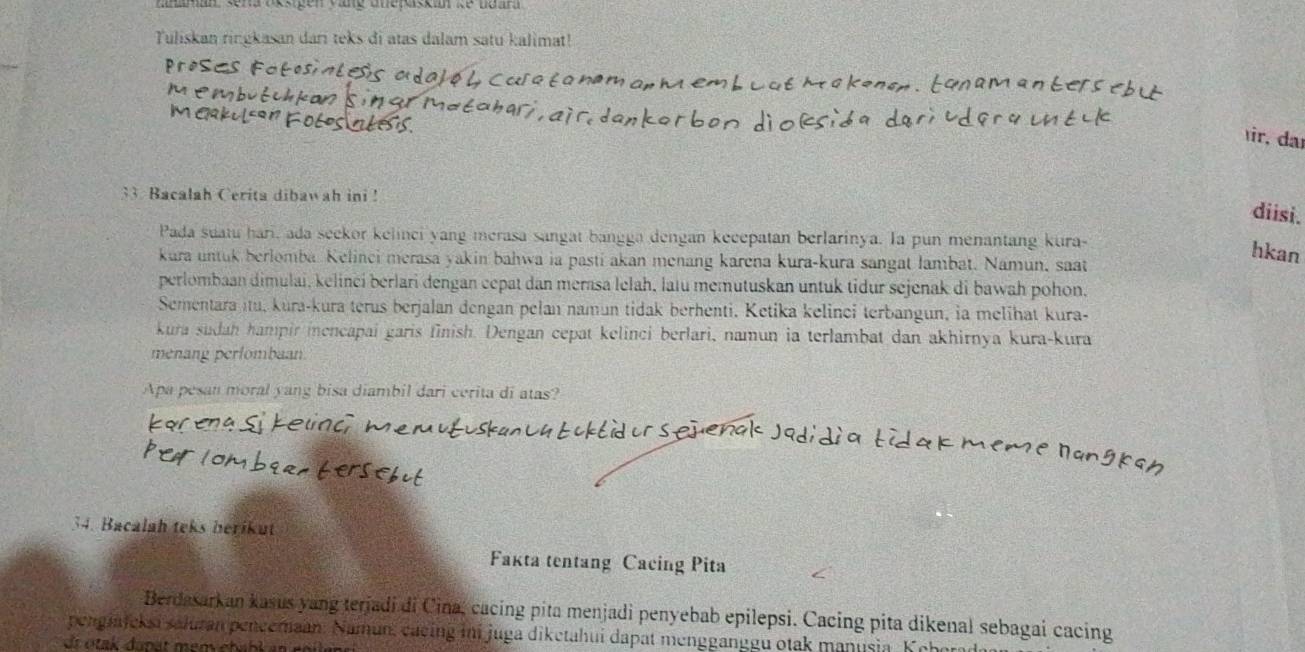 tanaman, serta oksigen yang dilepaskan ke udara.
Tuliskan ringkasan dari teks di atas dalam satu kalimat!
Proses Fotosintesis adalah caratanamanmembuatmakanan. tanamantersebut
membutuhkan sinar matahari, air, dankarbon dioksida dariudarauntuk
meakukan Fotosintesis.
air, dan
33. Bacalah Cerita dibawah ini !
diisi.
Pada suatu hari, ada seekor kelinci yang merasa sangat bangga dengan kecepatan berlarinya. Ia pun menantang kura-
hkan
kura untuk berlomba. Kelinci merasa yakin bahwa ia pasti akan menang karena kura-kura sangat lambat. Namun, saat
perlombaan dimulai, kelinci berlari dengan cepat dan merasa lelah, lalu memutuskan untuk tidur sejenak di bawah pohon.
Sementara itu, kura-kura terus berjalan dengan pelan namun tidak berhenti. Ketika kelinci terbangun, ia melihat kura-
kura sudah hampir mencapai garis finish. Dengan cepat kelinci berlari, namun ia terlambat dan akhirnya kura-kura
menang perlombaan.
Apa pesan moral yang bisa diambil dari cerita di atas?
karena si kelinci memutuskanuntuktidur sejenak jadi dia tidak memenangkan
Perlombaantersebut
34. Bacalah teks berikut
Fakta tentang Cacing Pita
Berdasarkan kasus yang terjadi di Cina, cacing pita menjadi penyebab epilepsi. Cacing pita dikenal sebagai cacing
penginfeksi saluran pencernaan. Namun, cacing ini juga diketahui dapat mengganggu otak manusia.
di otak dapat